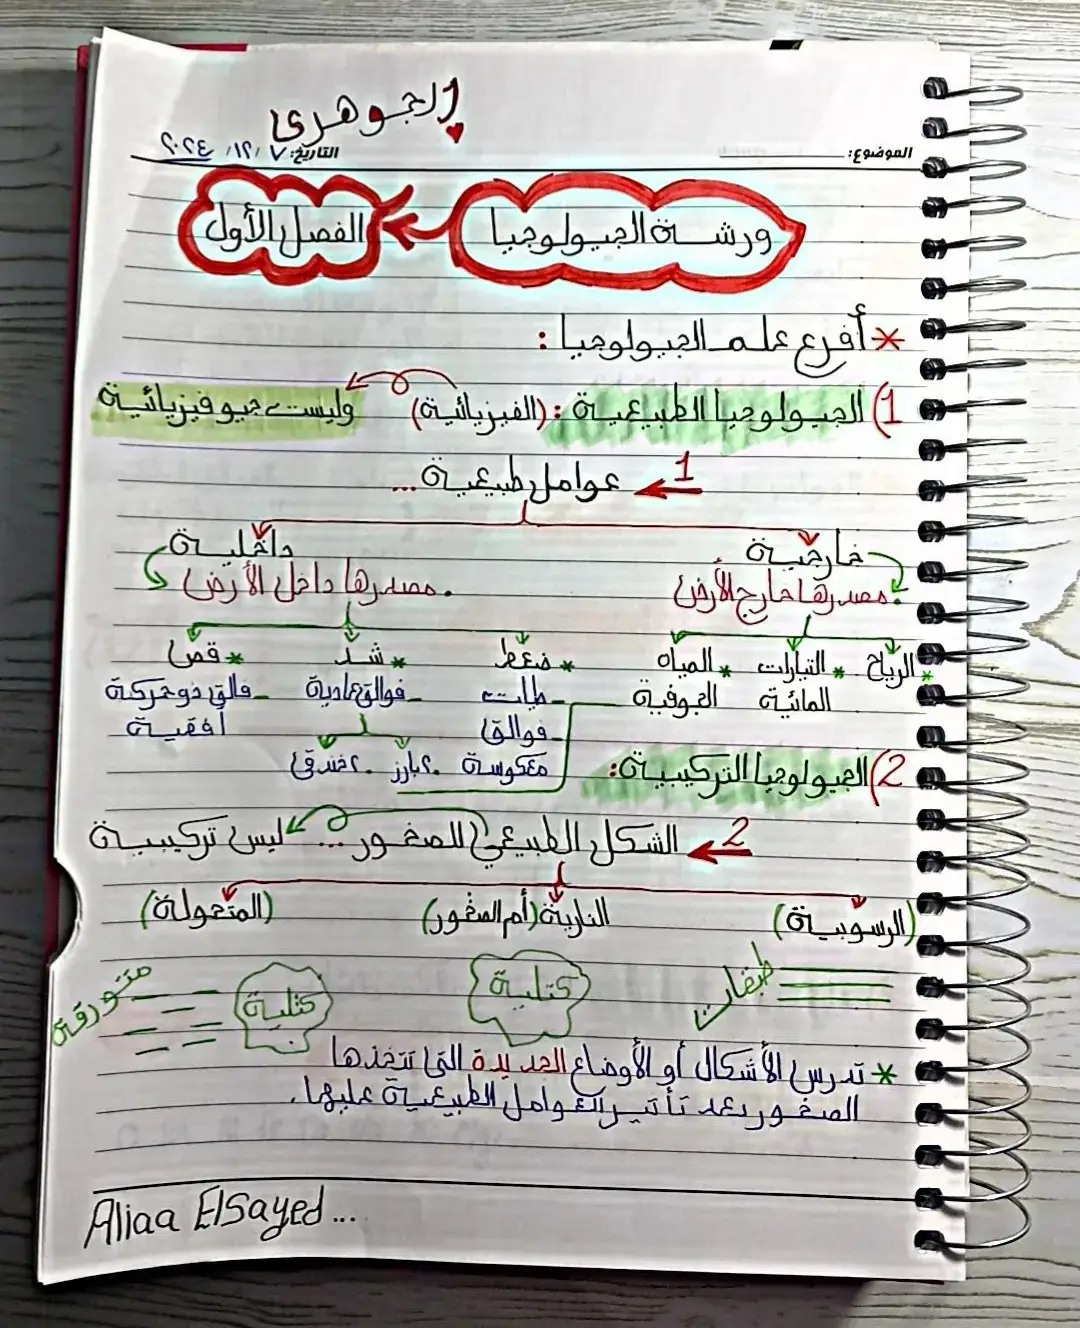 الجوهرى
الموضوع: التاريخ: ٧ / ١٢ / ٢٠٢٤
ورشة الجيولوجيا الفصل الأول
* أفرع علم الجيولوجيا :
1) الجيولوجيا الطبيعية : (الفيزيائية) وليست جيوفيزيائية
1 عوامل طبيعية ...
خارجية داخلية
. مصدرها خارج الأرض . مصدرها داخل الأرض
* الرياح * التيارات * المياه * ضغط * شد * قص
المائية الجوفية - طيات - فوالق عادية - فالق ذو حركة
- فوالق أفقية
معكوسة . بارز . خندقى
2) الجيولوجيا التركيبية :
2 الشكل الطبيعي للصخور ... ليس تركيبية
(الرسوبية) النارية (أم الصخور) (المتحولة)
طبقات كتلية كتلية متورقة
* تدرس الأشكال أو الأوضاع الجديدة التى تتخذها
الصخور بعد تأثير العوامل الطبيعية عليها .
Aliaa ElSayed ...